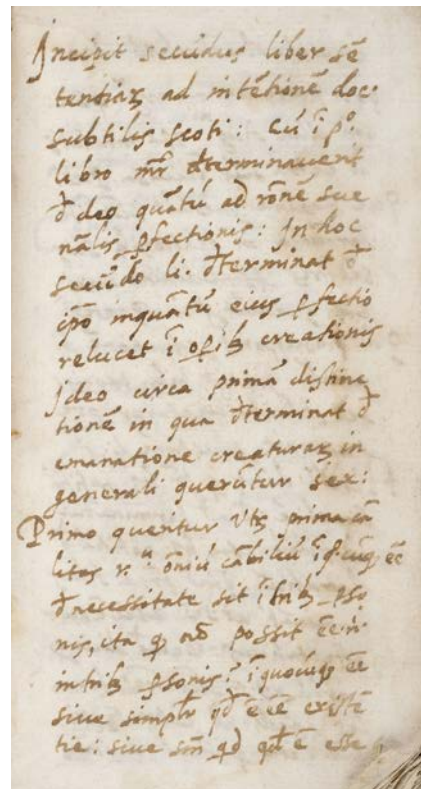 Incipit secūdus liber sē
tentiaꝝ ad intētionē doc.
subtilis scoti: Cū ī pº.
libro mr̄ đterminauerit
đ deo quātū ad rōnē sue
nālis ꝑfectionis: In hoc
secūdo li. đterminat đ
ip̄o inquātū eius ꝑfectio
relucet ī oꝑibꝫ creationis
Ideo circa primā distinc
tionē in qua đterminat đ
emanatione creaturaꝝ in
generali querūtur sex:
Primo queritur vtꝝ prima cā
litas oīniū cābiliū ēē
đ necessitate sit ī tribꝫ ꝑso
nis, ita ꝙ nō possit ēē
in tribꝫ ꝑsonis? ī quocūqꝫ ēē
siue simplr̄ qđ ē ēē existē
tie: siue sm̄ qđ ē esse